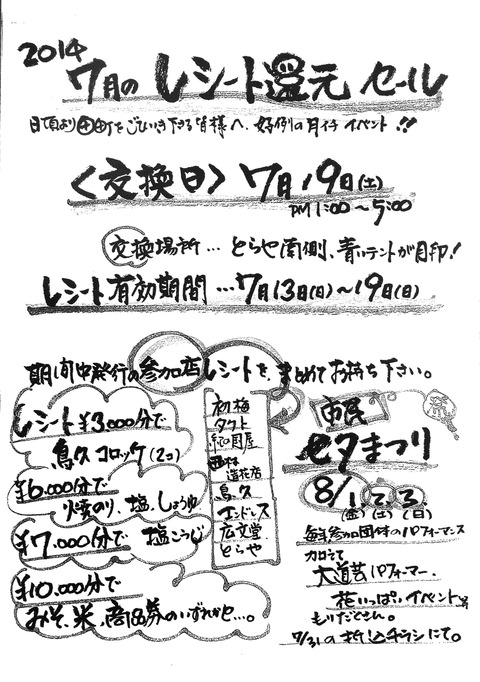 2014
7月の レシート還元 セール
日頃より㊉町をごひいき下さる皆様へ、好例の月イチ イベント!!
〈交換日〉7月19日(土)
PM1:00〜5:00
交換場所…とらや南側、青いテントが目印!
レシート有効期間…7月13日(日)〜19日(日)
期間中発行の参加店レシートを、まとめてお持ち下さい。
レシート¥3.000分で
鳥久コロッケ(2コ)
¥6.000分で
焼のり、塩、しょうゆ
¥7.000分で 塩こうじ
¥10.000分で
みそ、米、商品券のいずれか…。
初梅
タクト
紀国屋
西林造花店
鳥久
エンドレス
広文堂
とらや
市民
七夕まつり
8/1.2.3.
(金)(土)(日)
毎年参加団体のパフォーマンス
加えて
大道芸パフォーマー、
花いっぱいイベント等
もりだくさん。
7/31の折込チラシにて。